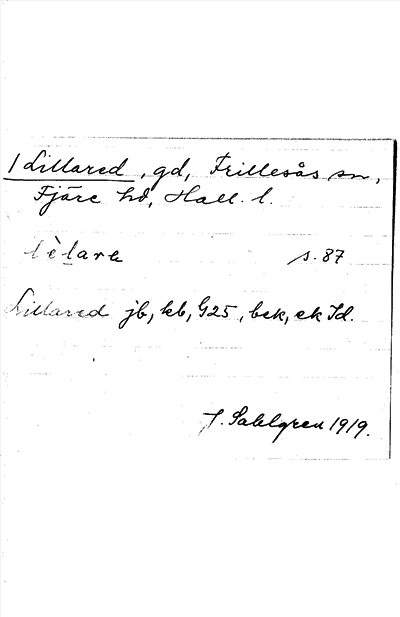 1 Lillared, gd, Frillesås sn,
Fjäre hd, Hall. l.
lèlare s. 87
Lillared jb, kb, G25, bek, ek Id.
J. Sahlgren 1919.